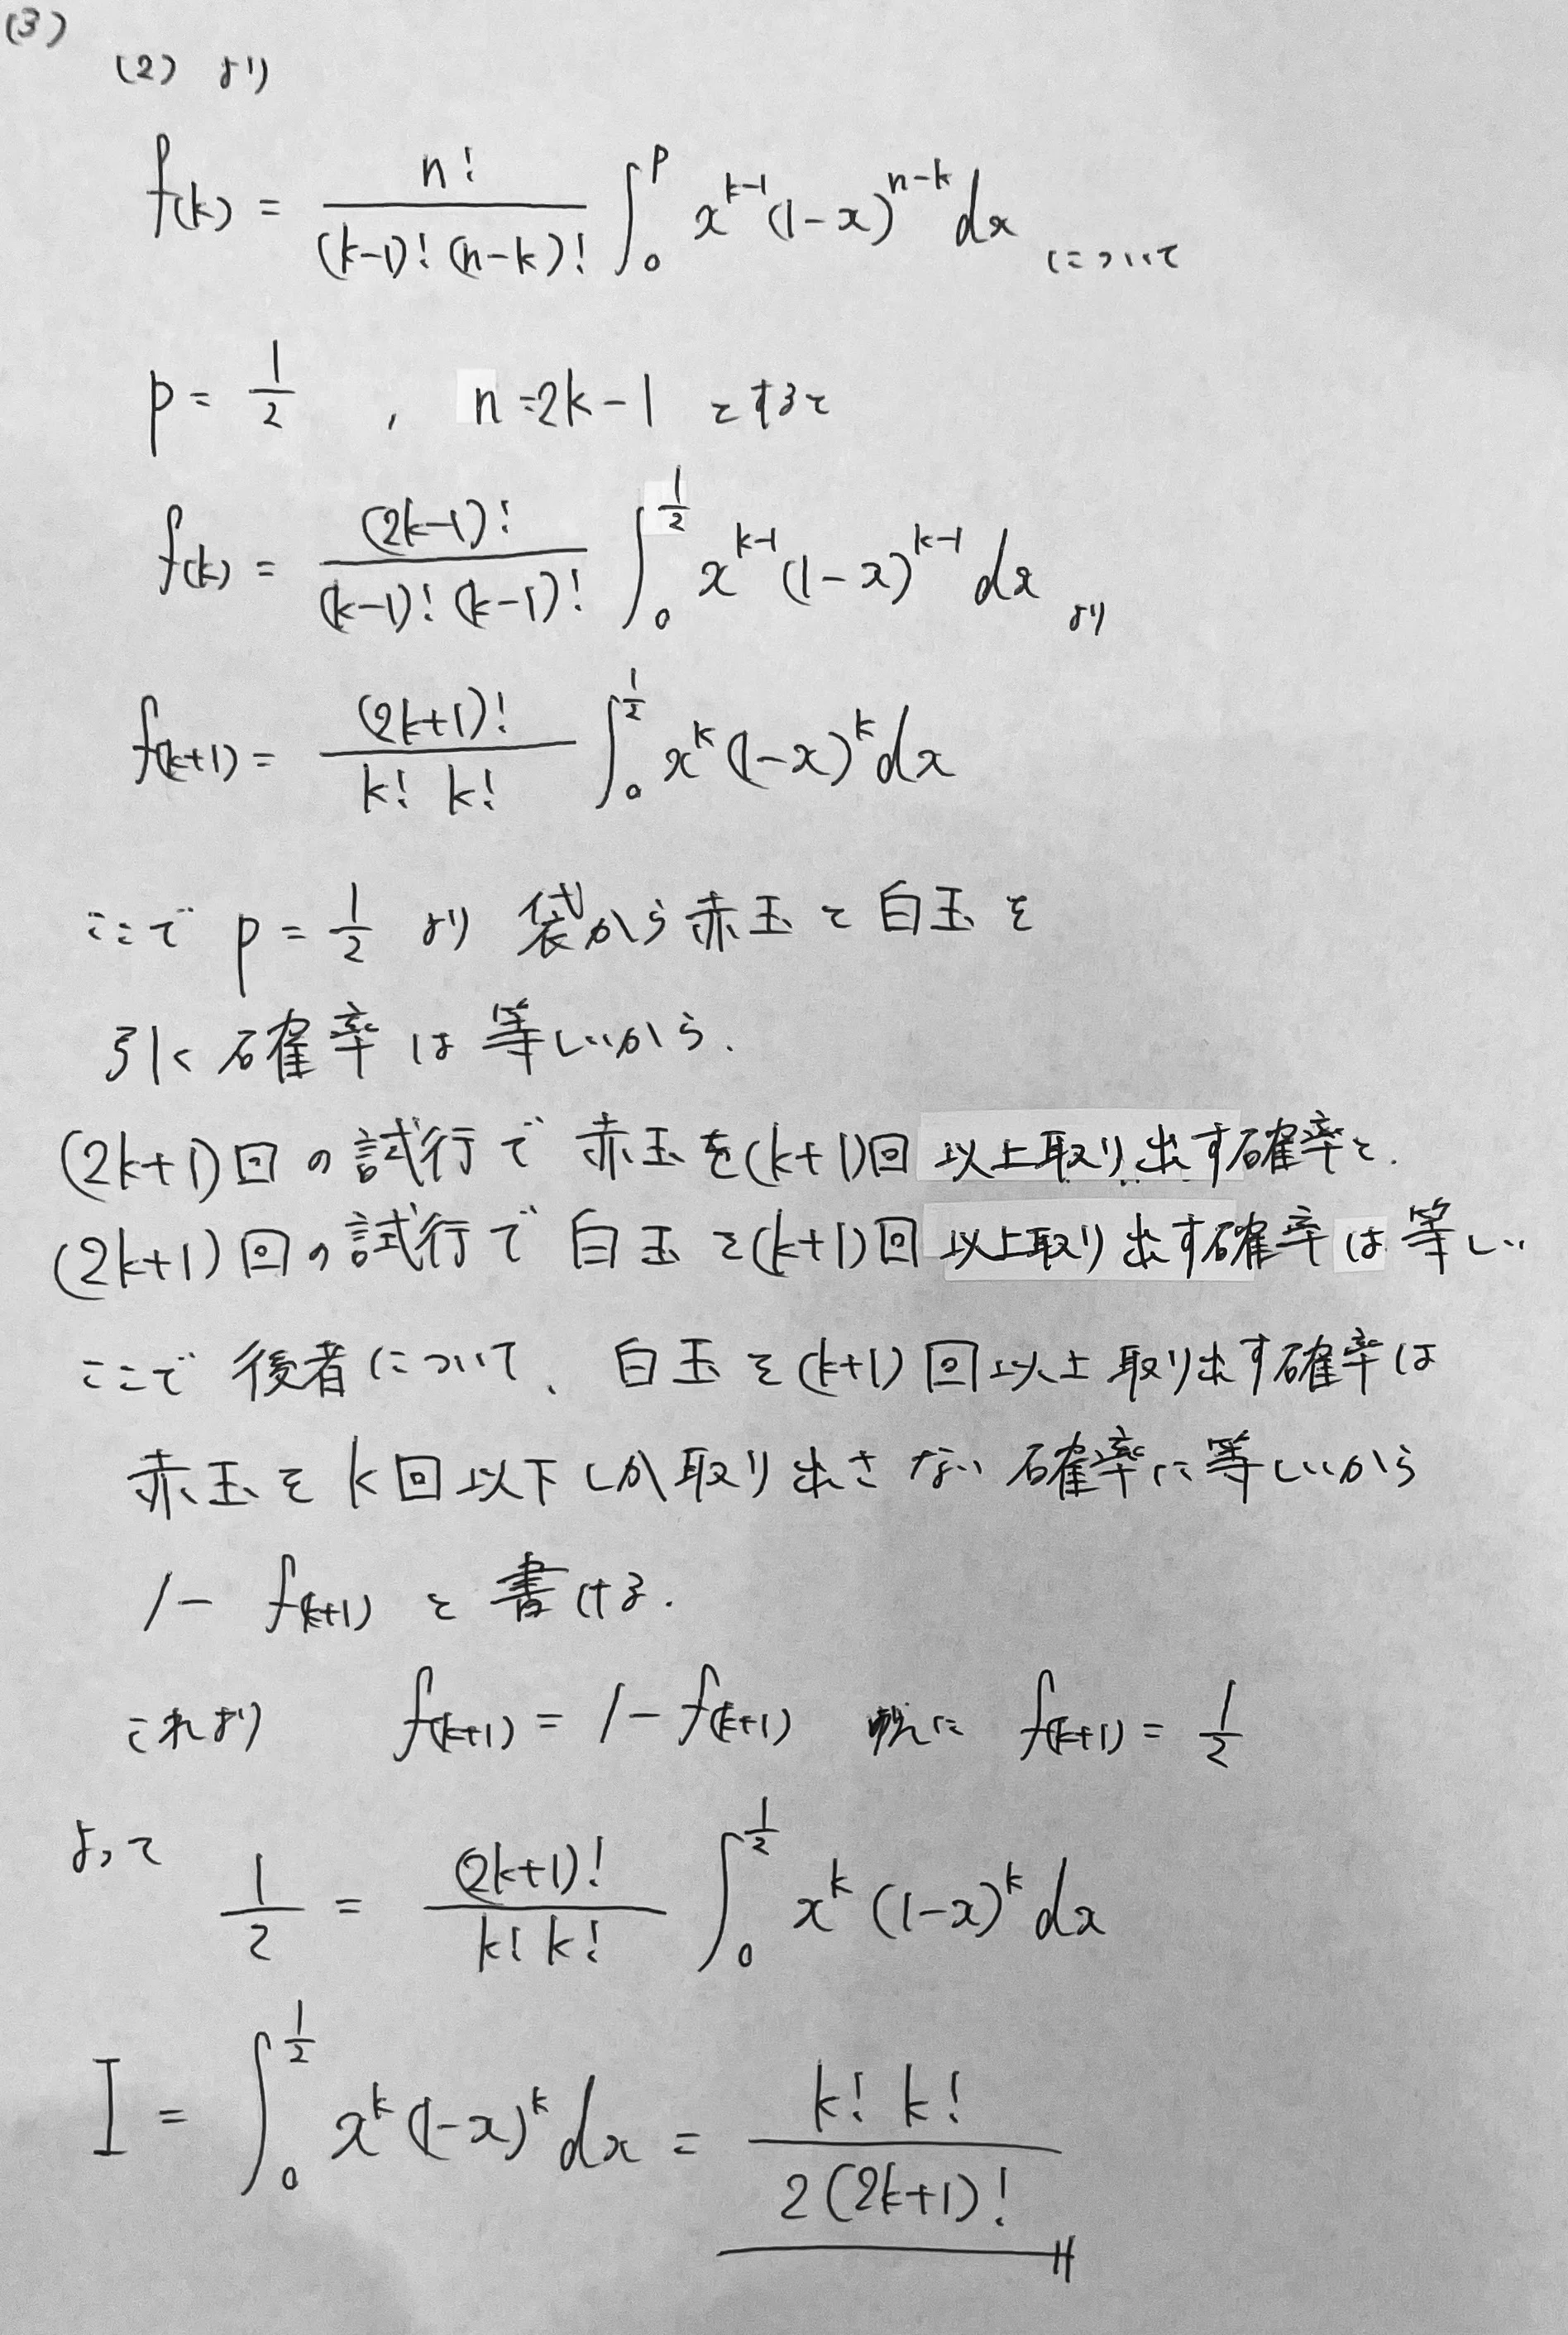 (3)
(2) より
f(k) = n! / (k-1)! (n-k)! ∫₀^p x^{k-1} (1-x)^{n-k} dx について
p = 1/2 , n=2k-1 とすると
f(k) = (2k-1)! / (k-1)! (k-1)! ∫₀^{1/2} x^{k-1} (1-x)^{k-1} dx より
f(k+1) = (2k+1)! / k! k! ∫₀^{1/2} x^k (1-x)^k dx
ここで p = 1/2 より 袋から赤玉と白玉を
引く確率は等しいから.
(2k+1)回の試行で赤玉を(k+1)回以上取り出す確率と.
(2k+1)回の試行で白玉を(k+1)回以上取り出す確率は等しい
ここで後者について、白玉を(k+1)回以上取り出す確率は
赤玉をk回以下しか取り出さない確率に等しいから
1- f(k+1) と書ける.
これより f(k+1) = 1- f(k+1) 故に f(k+1) = 1/2
よって 1/2 = (2k+1)! / k! k! ∫₀^{1/2} x^k (1-x)^k dx
I = ∫₀^{1/2} x^k (1-x)^k dx = k! k! / 2(2k+1)!